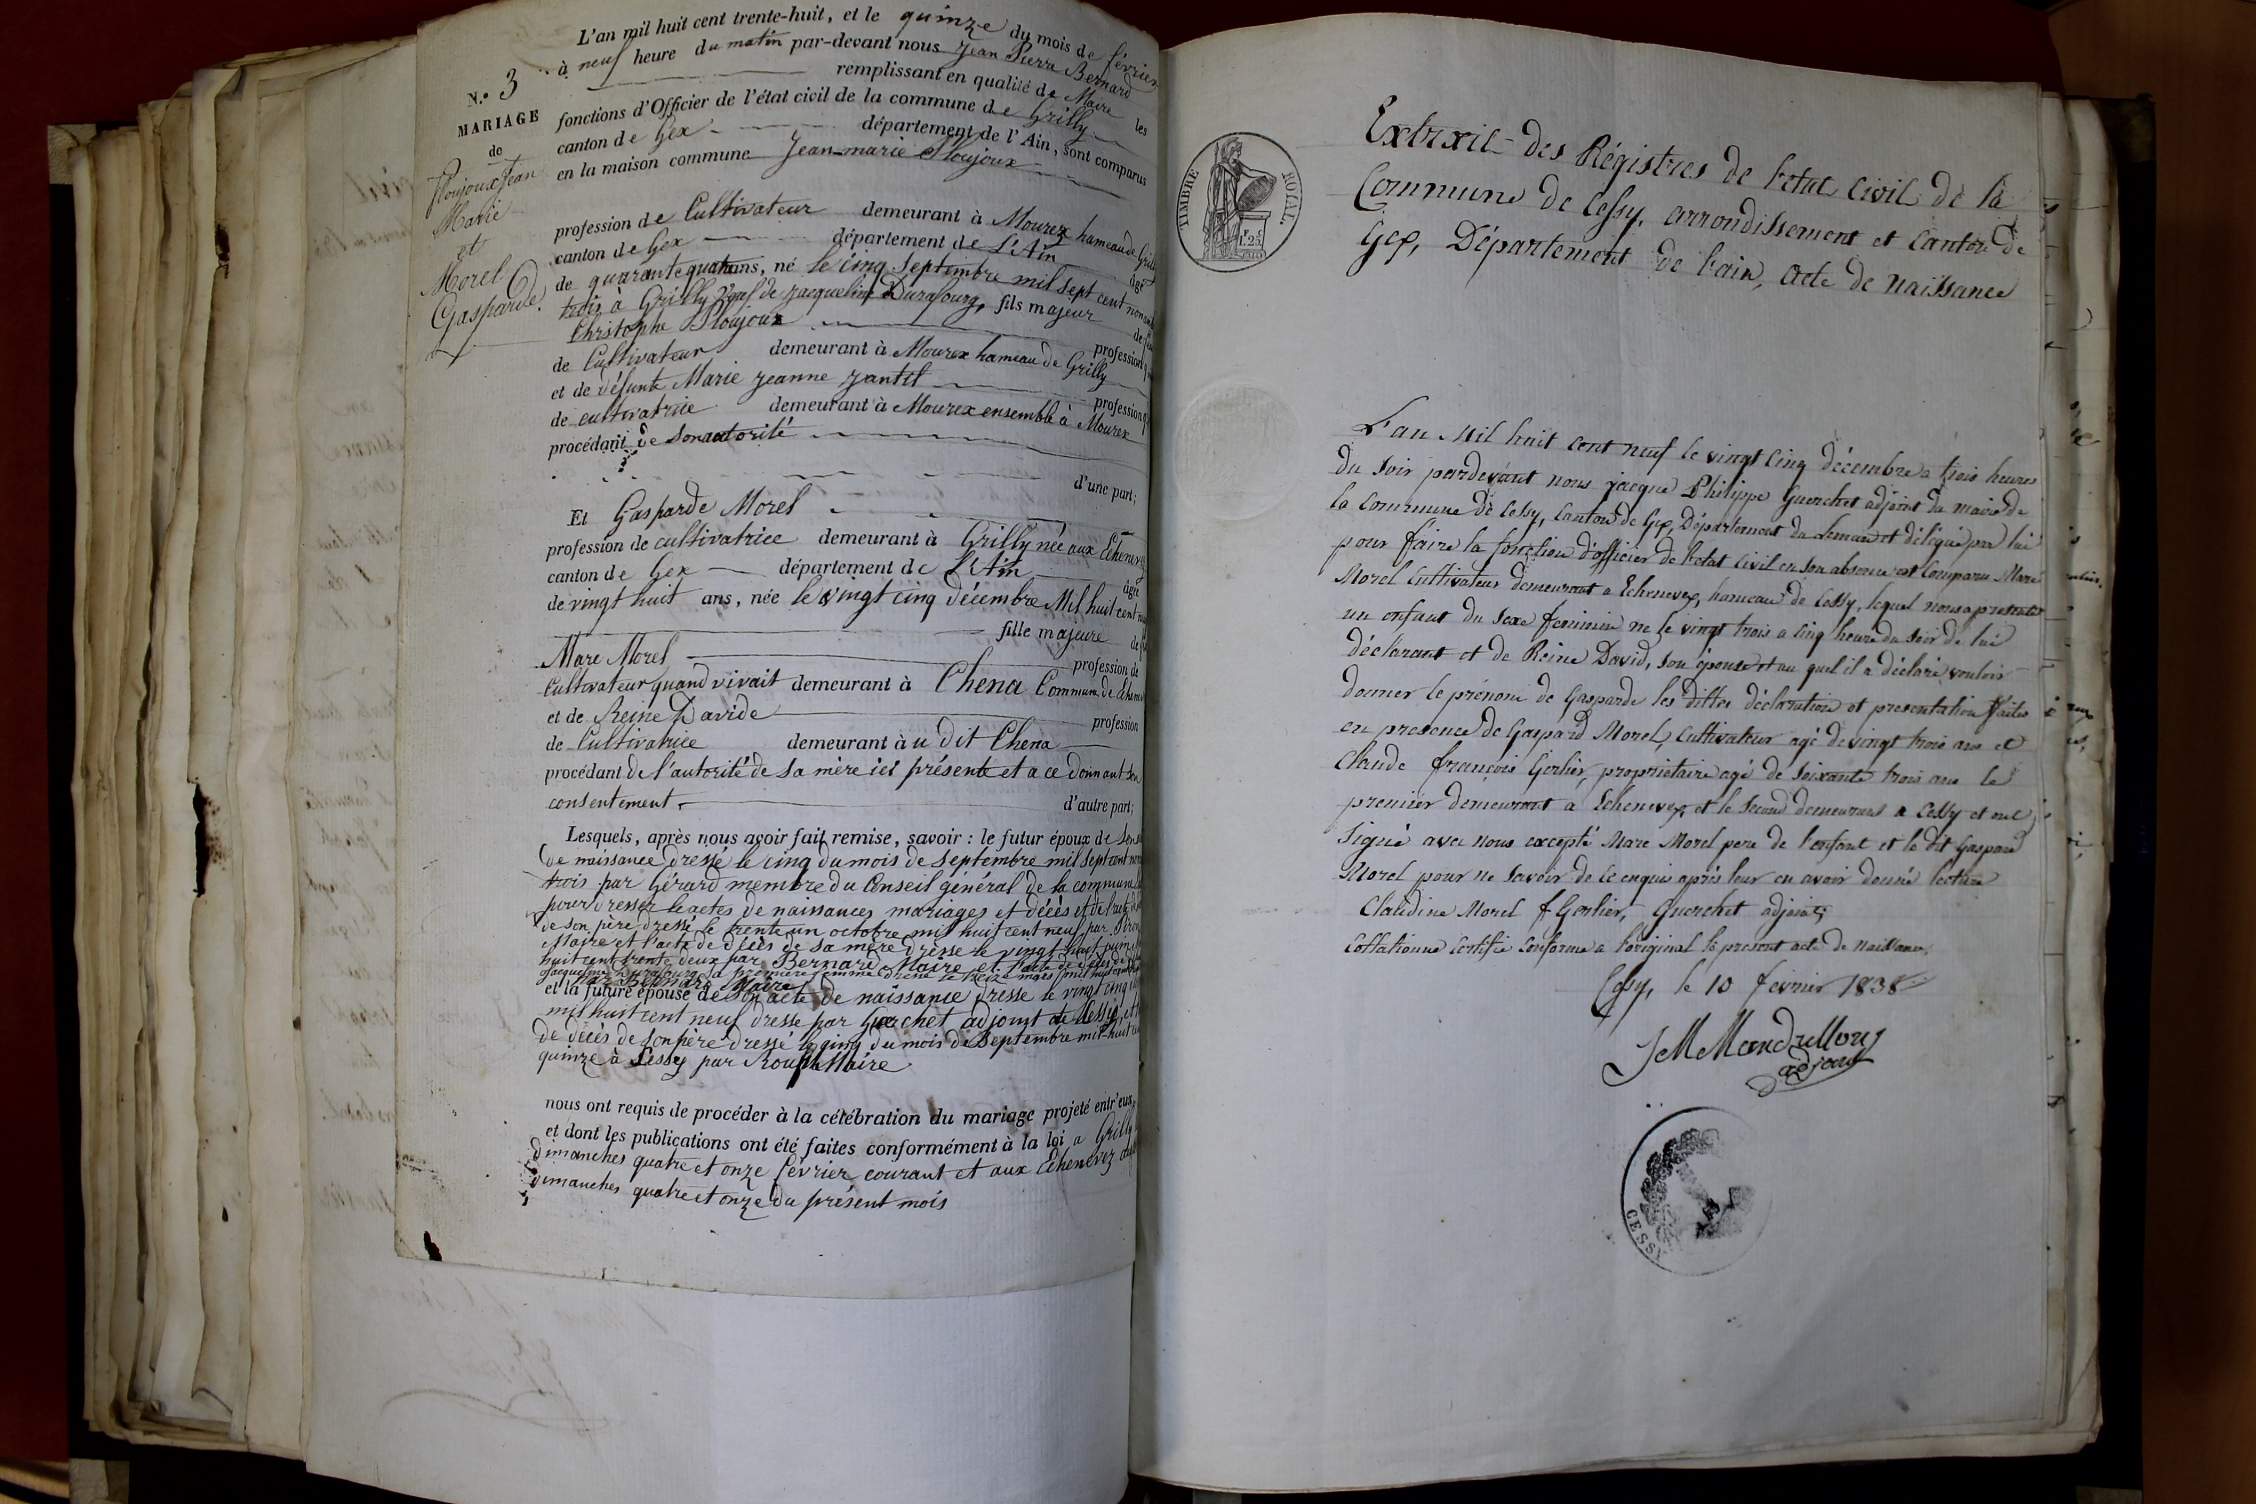 L'an mil huit cent trente-huit, et le quinze du mois de février
à neuf heure du matin par-devant nous Jean Pierre Bernard
remplissant en qualité de Maire les
N.° 3
MARIAGE
de
Ploujoux Jean
Marie
et
Morel
Gasparde.
fonctions d'Officier de l'état civil de la commune de Grilly
canton de Gex département de l'Ain, sont comparus
en la maison commune Jean-marie Ploujoux
profession de Cultivateur demeurant à Mourex hameau de Grilly
canton de Gex département de L'Ain âgé
de quarante quatre ans, né le cinq Septembre mil sept cent nonante
trois à Grilly Veuf de jacqueline Durafourg, fils majeur de
Christophe Ploujoux profession
de Cultivateur demeurant à Mourex hameau de Grilly
et de défunte Marie jeanne jantil profession
de cultivatrice demeurant à Mourex ensemble à Mourex
procédant de son autorité
d'une part;
Et Gasparde Morel
profession de cultivatrice demeurant à Grilly née aux Echenevex
canton de Gex département de L'Ain âgée
de vingt huit ans, née le vingt cinq décembre Mil huit cent neuf
fille majeure de
Marc Morel profession de
Cultivateur quand vivait demeurant à Chena Commune de
et de Reine Davide profession
de Cultivatrice demeurant à u dit Chena
procédant de l'autorité de sa mère ici présente et a ce donnant son
consentement. d'autre part;
Lesquels, après nous avoir fait remise, savoir : le futur époux de son
de naissance dressé le cinq du mois de Septembre mil sept cent
trois par Gérard membre du Conseil général de la commune
pour dresser les actes de naissances mariages et décès et de l'acte
de son père dressé le trente un octobre mil huit cent neuf par
Maire et l'acte de décès de sa mère dressé le vingt huit
huit cent trente deux par Bernard Maire et l'acte de décès de
Jacqueline Durafourg sa première femme dressé le treize mars mil huit cent
par Bernard Maire
et la future épouse de son acte de naissance dressé le vingt cinq
mil huit cent neuf dressé par Guerchet adjoint de Cessy, et
de décès de son père dressé le cinq du mois de Septembre mil huit cent
quinze à Cessy par Maire
nous ont requis de procéder à la célébration du mariage projeté entr'eux,
et dont les publications ont été faites conformément à la loi a Grilly
dimanches quatre et onze février courant et aux Echenevez
dimanches quatre et onze du présent mois
TIMBRE ROYAL
1f. 25
Extrait des Régistres de l'etat civil de la
Commune de Cessy, arrondissement et canton de
Gex, Département de l'ain, acte de naissance
L'an Mil huit cent neuf le vingt cinq décembre a trois heures
du soir pardevant nous jacque Philippe Guerchet adjoint du maire de
la Commune de Cessy, Canton de Gex, Département du Leman et délégué par lui
pour faire la fonction d'officier de l'etat civil en son absence est Comparu Marc
Morel Cultivateur demeurant a Echenevex, hameau de Cessy, lequel nous a presenté
un enfant du sexe feminin ne le vingt trois a cinq heure du soir de lui
déclarant et de Reine David, son épouse et au quel il a déclaré vouloir
donner le prénom de Gasparde les dittes déclaration et presentation faites
en presence de Gaspard Morel, Cultivateur agé de vingt trois ans et
Claude françois Gerlier, proprietaire agé de soixante trois ans le
premier demeurant a Echenevex, et le second demeurant a Cessy et ont
signé avec nous excepté Marc Morel pere de l'enfant et le dit Gaspard
Morel pour ne savoir de ce enquis après leur en avoir donné lecture
Claudine Morel f Gerlier, Guerchet adjoint;
Collationné certifié conforme a l'original le present acte de naissance,
Cessy, le 10 fevrier 1838
adjoint
CESSY